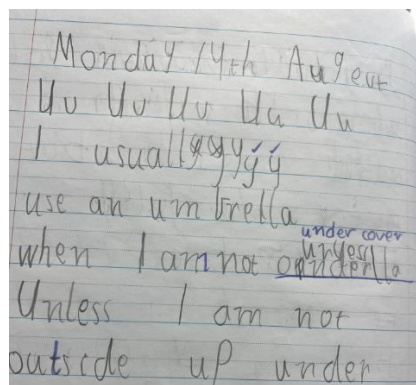 Monday 14th Augeut
Uu Uu Uu Uu Uu
I usually y y y y y
use an umbrella
under cover
when I am not
Unless I am not
outside up under